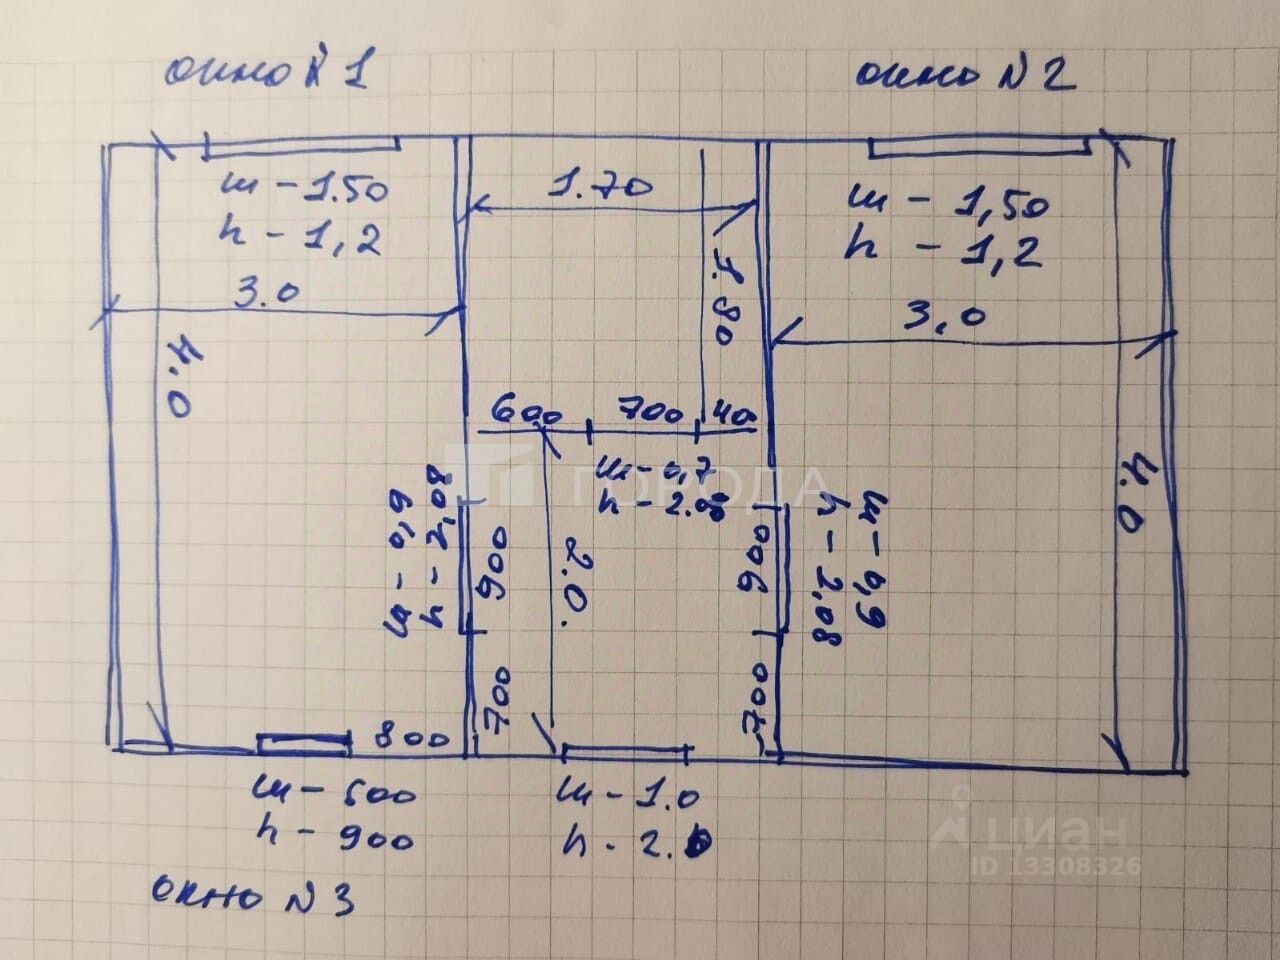 окно N 1
окно N 2
ш - 1.50
h - 1,2
3.0
4.0
1.70
1.80
ш - 1,50
h - 1,2
3,0
4.0
600
700
40
ш - 0,7
h - 2.00
ГОРОДА
ш - 0,9
h - 2,08
900
700
2.0.
900
700
ш - 0,9
h - 2,08
800
ш - 500
h - 900
ш - 1.0
h - 2.
окно N 3
циан
ID 13308326